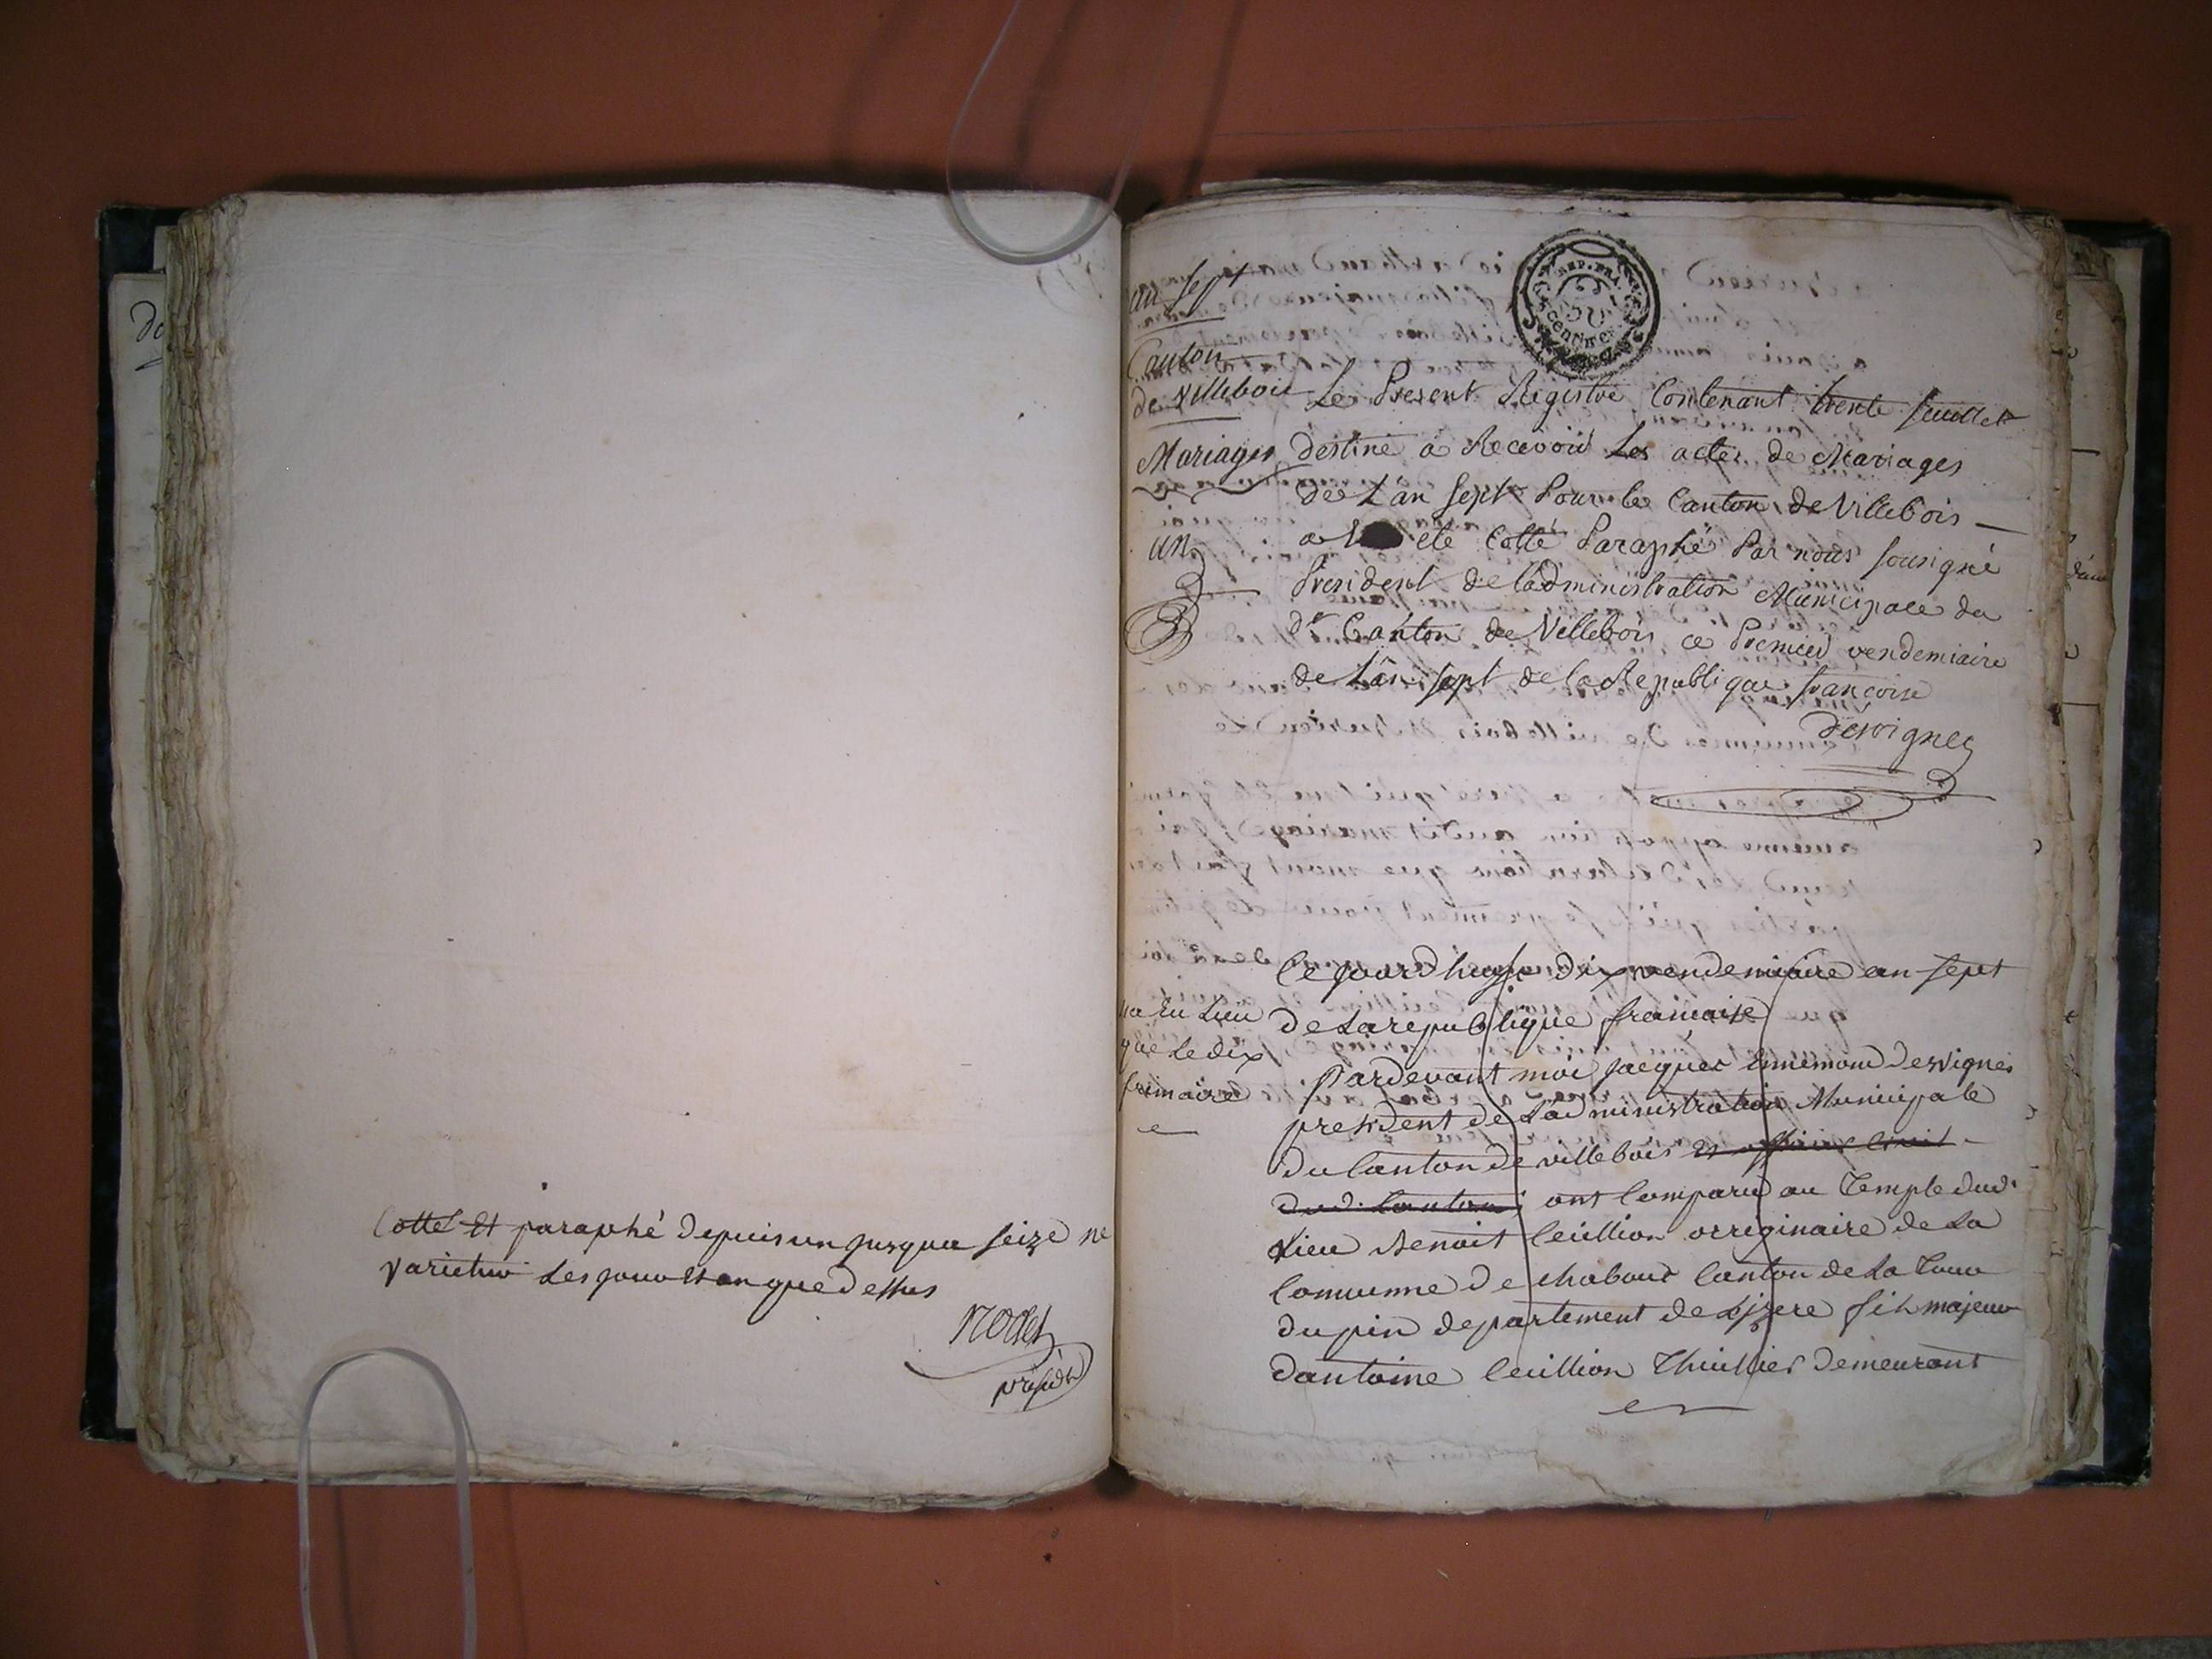 Cotté Et paraphé depuis un jusqua seize ne
varietur Les jour et an que dessus
presidt
an sept
Canton
de Villebois
Mariages
un
Le Present Registre Contenant trente feuillets
destiné a Recevoir Les actes de Mariages
de L'an sept Pour le Canton de Villebois
a été Cotté Paraphé Par nous sousigné
President de L'administration Municipale du
dt Canton de Villebois ce Premier vendemiaire
de L'an sept de la Republique francoise
desvignes
REP. FRA.
CENTIMES
Ce jourd'huy dix vendemiaire an sept
de La republique francaise
Pardevant moi jacques Ennemond Desvignes
president de Ladministration Municipale
du Canton de villebois Et officier Civil
dud. Canton ont Comparu au Temple dud.
Lieu Benoit Ceillion orriginaire de La
Commune de chabout Canton de La Tour
du pin departement de L'izere fils majeur
dantoine Ceillion Thuillier demeurant
En Lieu
que Le dix
frimaire